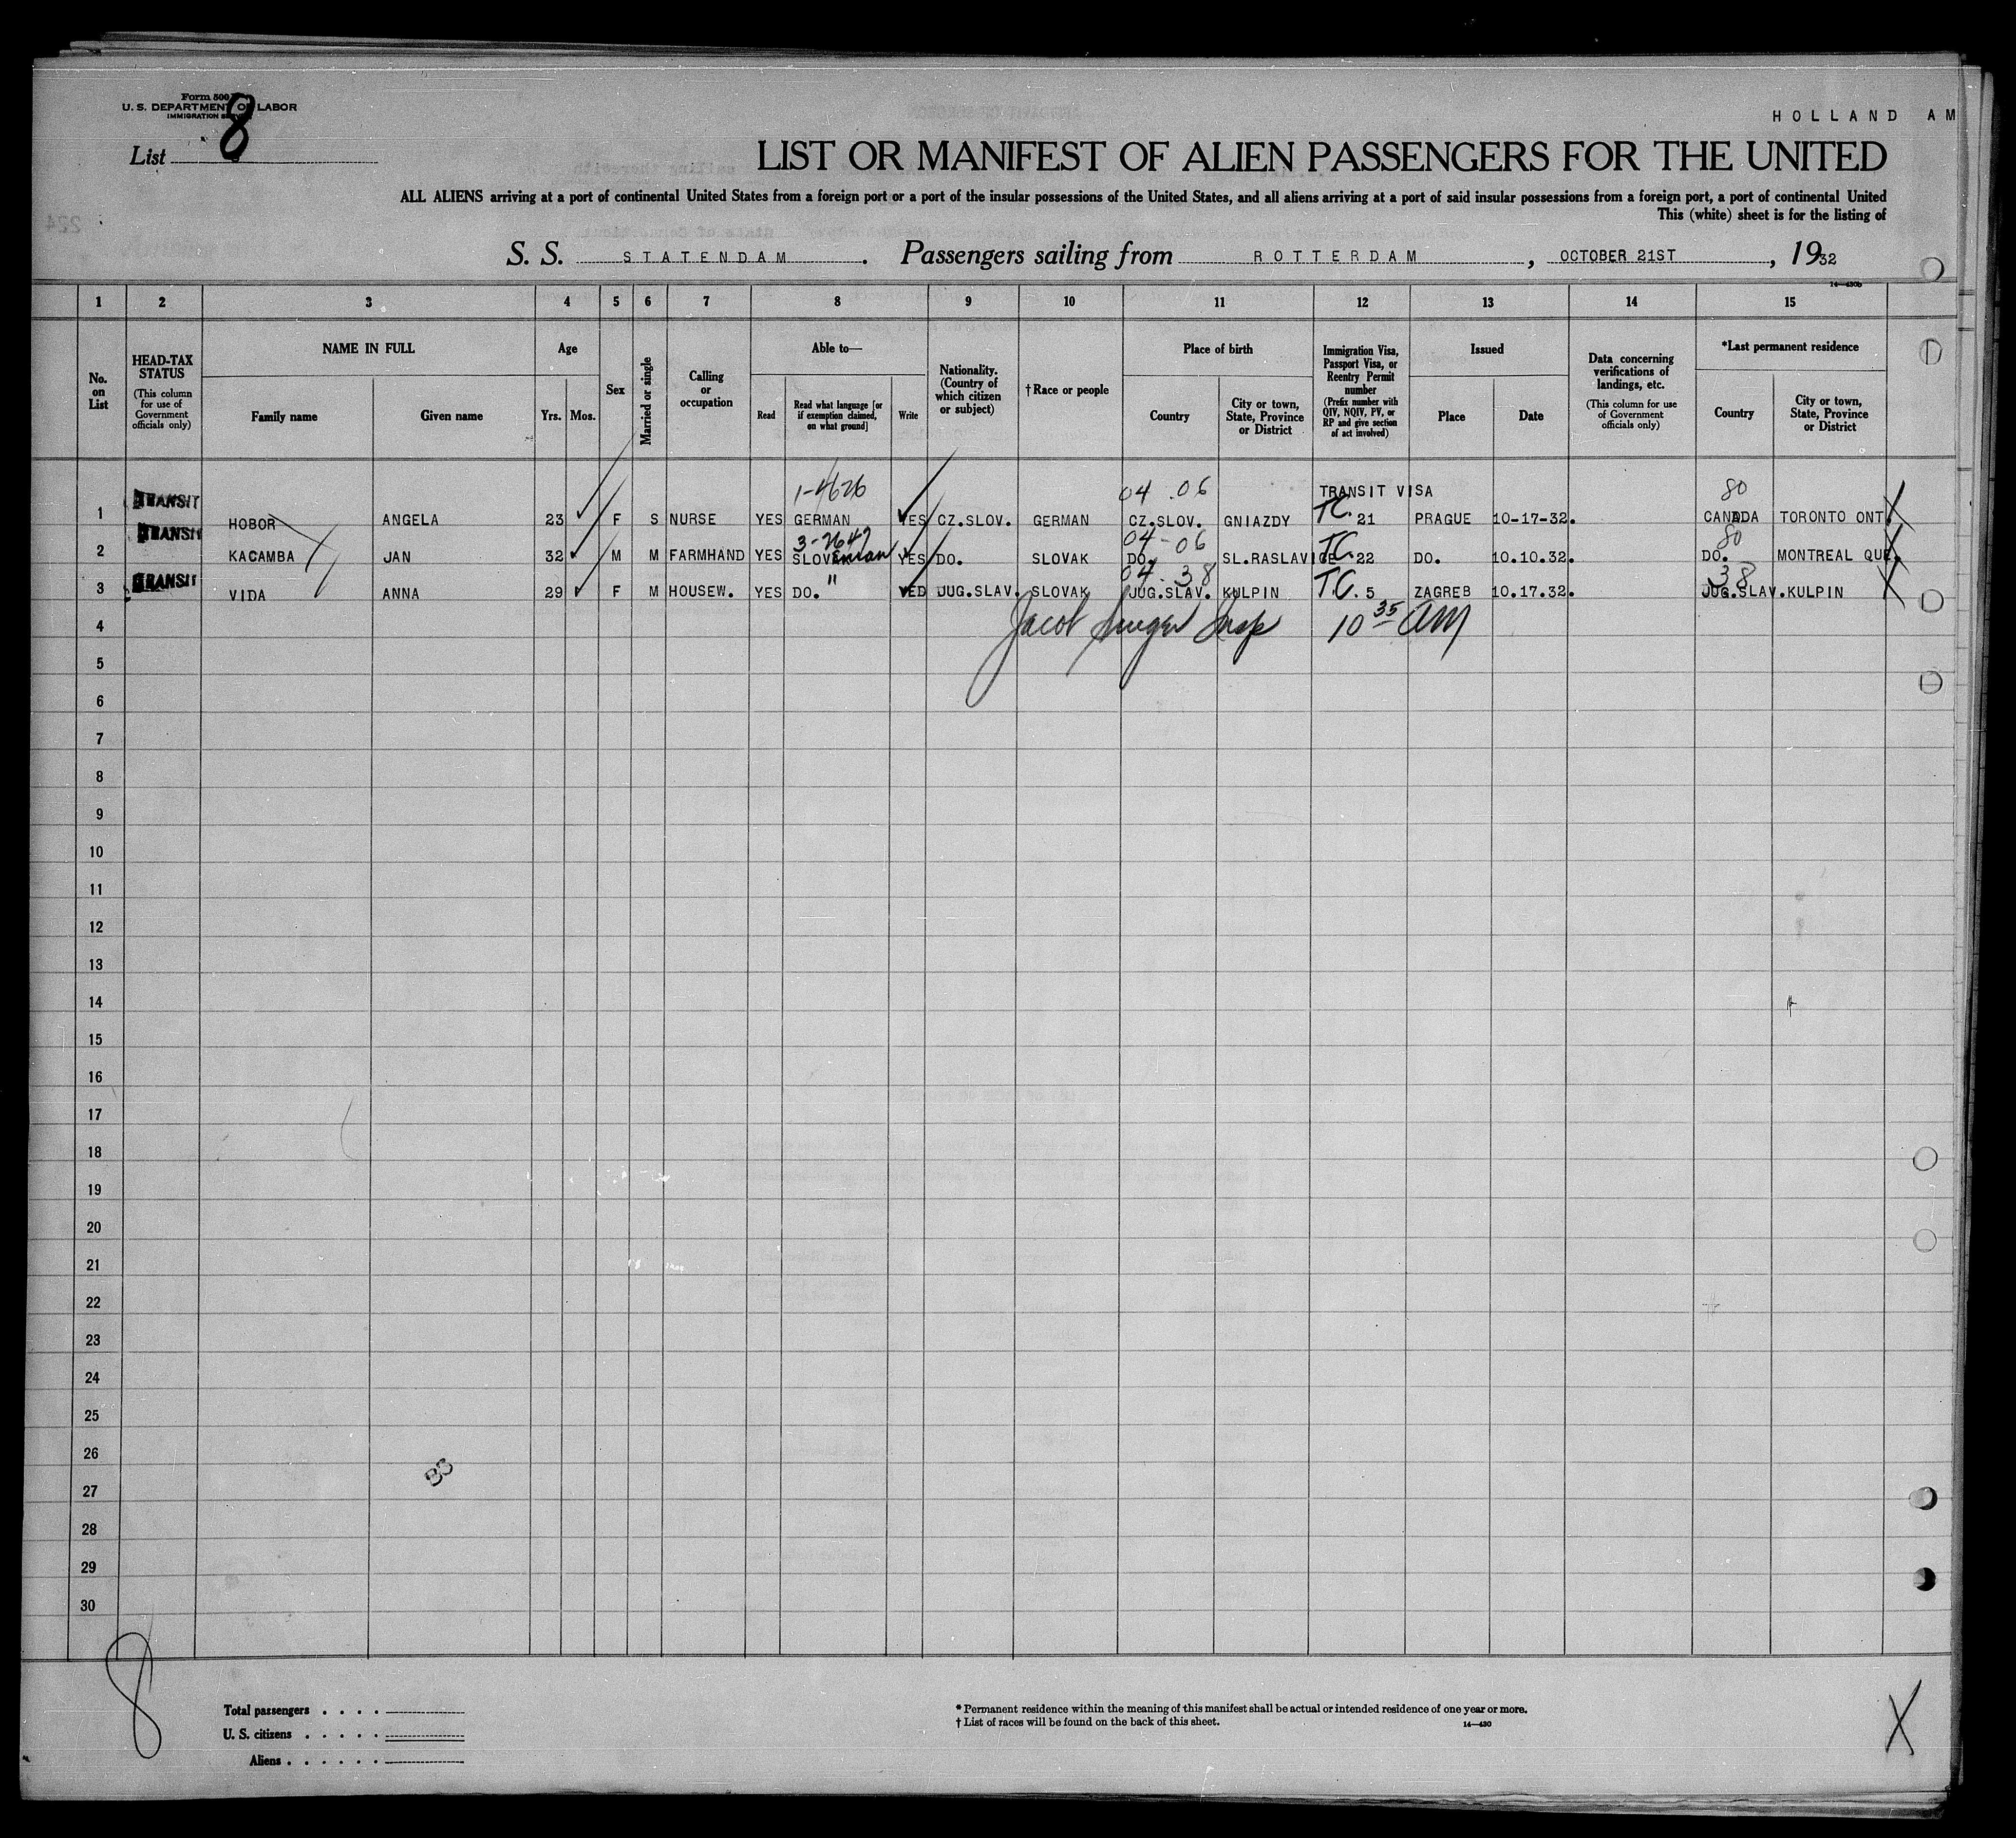 Form 500
U. S. DEPARTMENT OF LABOR
IMMIGRATION SERVICE
HOLLAND AM
List 8
LIST OR MANIFEST OF ALIEN PASSENGERS FOR THE UNITED
ALL ALIENS arriving at a port of continental United States from a foreign port or a port of the insular possessions of the United States, and all aliens arriving at a port of said insular possessions from a foreign port, a port of continental United
This (white) sheet is for the listing of
224
S. S. STATENDAM. Passengers sailing from ROTTERDAM, OCTOBER 21ST, 1932
14—430b
1 2 3 4 5 6 7 8 9 10 11 12 13 14 15
No. on List
HEAD-TAX STATUS (This column for use of Government officials only)
NAME IN FULL
Family name Given name
Age
Yrs. Mos.
Sex
Married or single
Calling or occupation
Able to—
Read Read what language [or if exemption claimed, on what ground] Write
Nationality. (Country of which citizen or subject)
†Race or people
Place of birth
Country City or town, State, Province or District
Immigration Visa, Passport Visa, or Reentry Permit number (Prefix number with QIV, NQIV, PV, or RP and give section of act involved)
Issued
Place Date
Data concerning verifications of landings, etc. (This column for use of Government officials only)
*Last permanent residence
Country City or town, State, Province or District
TRANSIT 1-4626 04 06 TRANSIT VISA 80
1 HOBOR ANGELA 23 F S NURSE YES GERMAN YES CZ.SLOV. GERMAN CZ.SLOV. GNIAZDY T.C. 21 PRAGUE 10-17-32. CANADA TORONTO ONT.
TRANSIT 3-2647 04-06 80
2 KACAMBA JAN 32 M M FARMHAND YES SLOVENIAN YES DO. SLOVAK DO. SL.RASLAVICE T.C. 22 DO. 10.10.32. DO. MONTREAL QUE.
TRANSIT " 04-38 38
3 VIDA ANNA 29 F M HOUSEW. YES DO. YED JUG.SLAV. SLOVAK JUG.SLAV. KULPIN T.C. 5 ZAGREB 10.17.32. JUG.SLAV. KULPIN
4 Jacob Insp 10 35 AM
5
6
7
8
9
10
11
12
13
14
15
16
17
18
19
20
21
22
23
24
25
26
27
28
29
30
8
Total passengers . . . .
U. S. citizens . . . . .
Aliens . . . . . .
* Permanent residence within the meaning of this manifest shall be actual or intended residence of one year or more.
† List of races will be found on the back of this sheet.
14—430
X